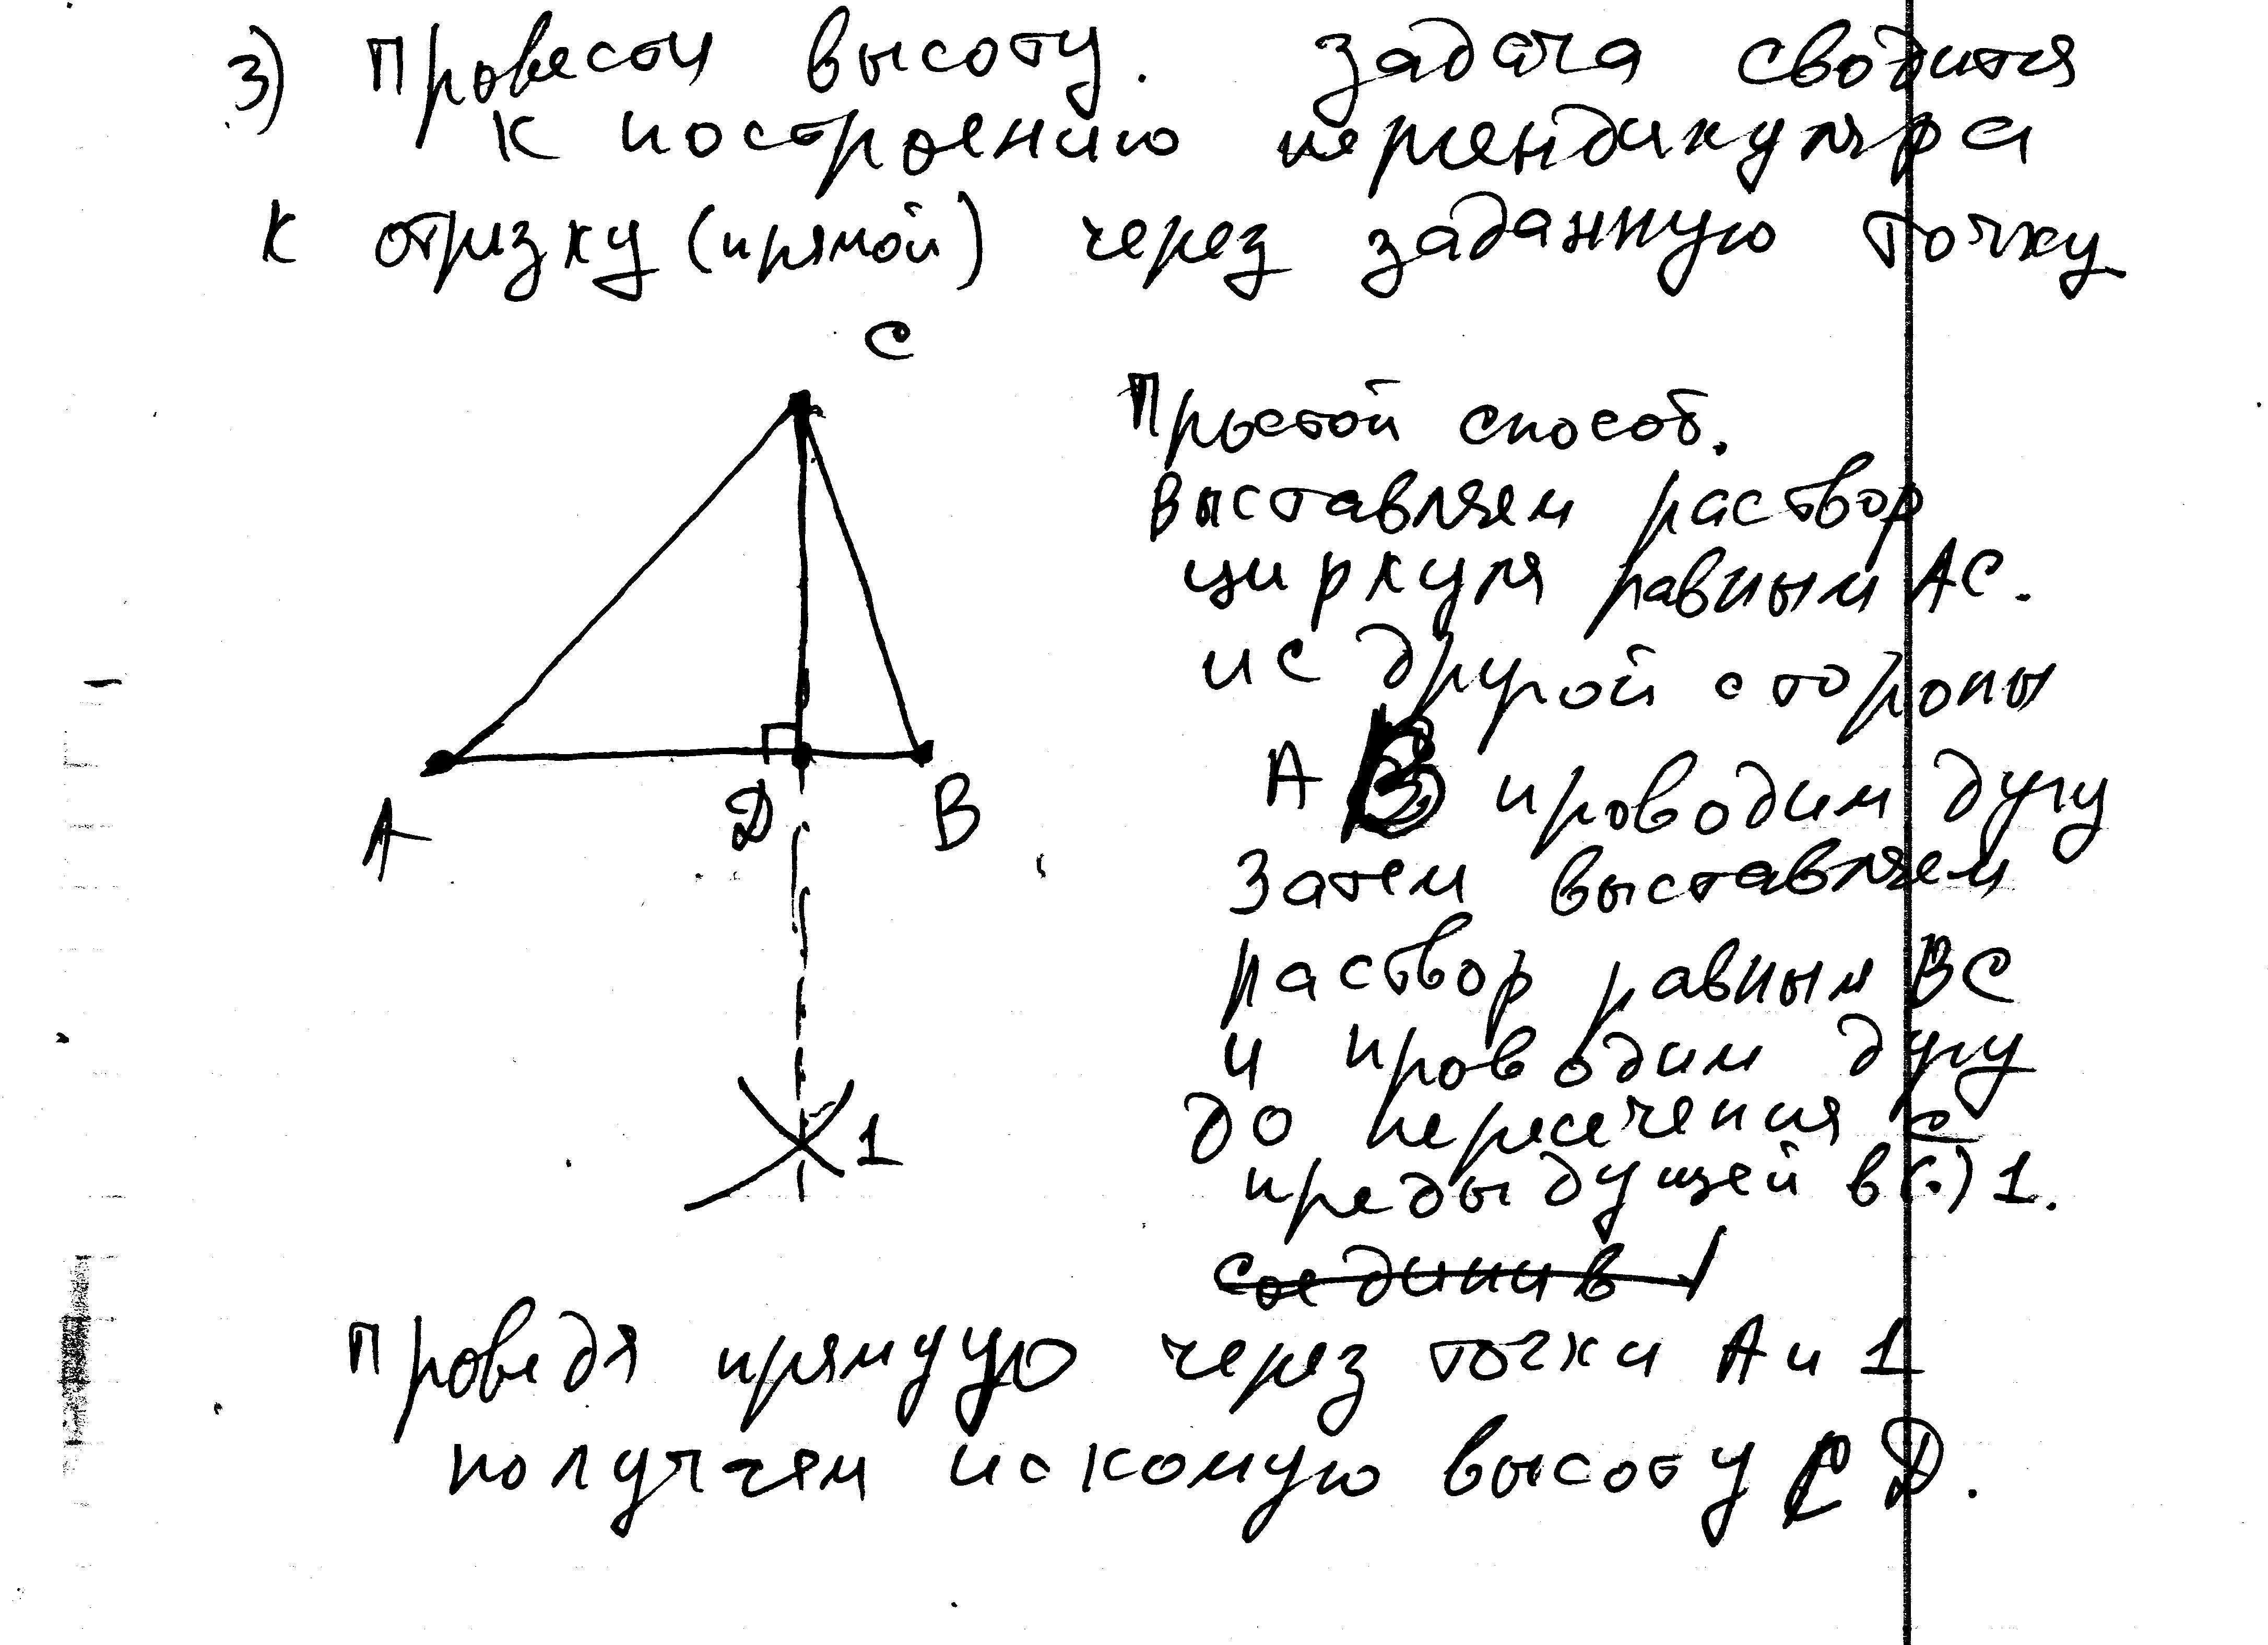 3) Провести высоту. Задача сводится
к построению перпендикуляра
к отрезку (прямой) через заданную точку
C
Простой способ.
Выставляем раствор
циркуля равным AC.
и с другой стороны
AB проводим дугу
Затем выставляем
раствор равным BC
и проводим дугу
до пересечения с
предыдущей в (·) 1.
соединив 1
A
D
B
1
Проведя прямую через точки A и 1
получаем искомую высоту CD.